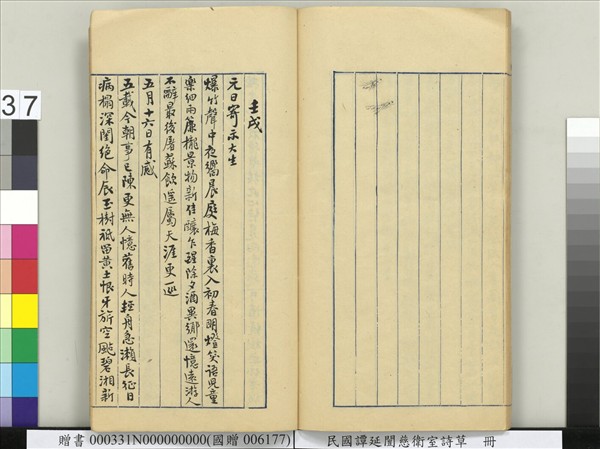 壬戌
元日寄示大生
爆竹聲中夜嚮晨庭梅香裏入初春明燈笑語兒童
樂細雨簾櫳景物新佳釀乍醒除夕酒異鄉還憶遠游人
不辭最後屠蘇飲遥屬天涯更一巡
五月十六日有感
五載今朝事已陳更無人憶舊時人輕舟急瀨長征日
病榻深閨絕命辰玉樹祗留黄土恨牙旂空颭碧湘新
37
贈書 000331N000000000(國贈 006177)
民國譚延闓慈衛室詩草 冊